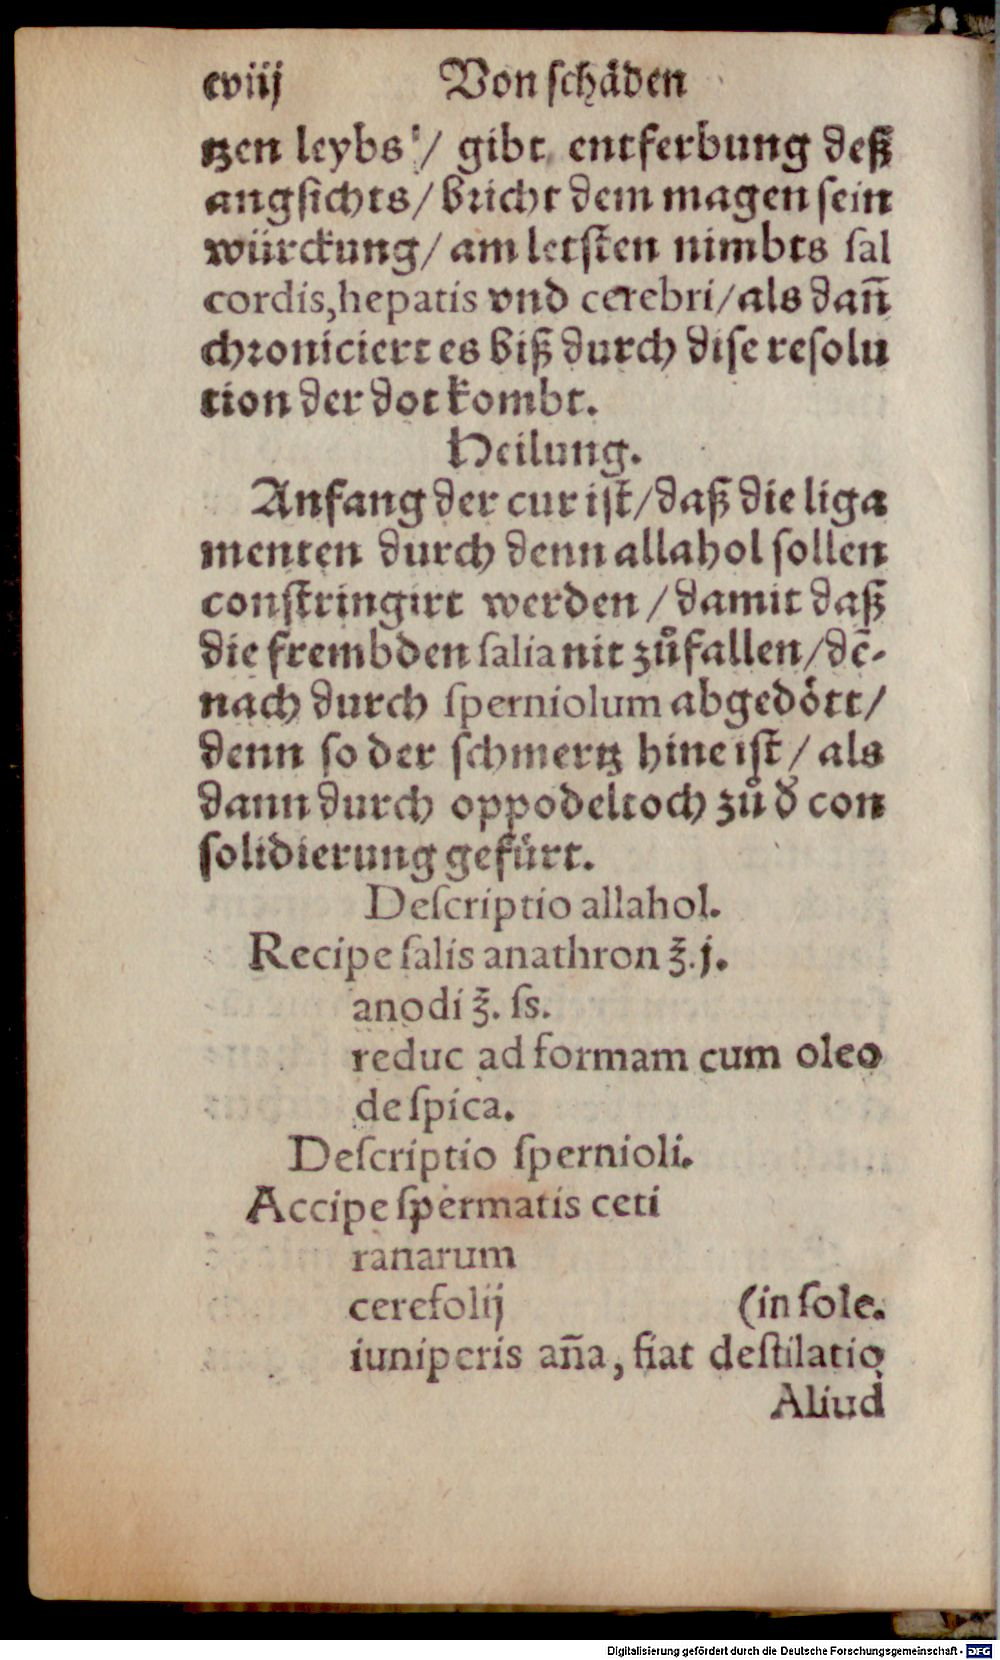 cviij Von schäden
tzen leybs / gibt entferbung deß
angsichts / bricht dem magen sein
würckung / am letsten nimbts ſal
cordis, hepatis vnd cerebri / als dañ
chroniciert es biß durch dise resolu
tion der dot kombt.
Heilung.
Anfang der cur ist / daß die liga
menten durch denn allahol sollen
constringirt werden / damit daß
die frembden ſalia nit zůfallen / dẽ-
nach durch ſperniolum abgedött /
denn so der schmertz hine ist / als
dann durch oppodeltoch zů đ con
solidierung gefürt.
Deſcriptio allahol.
Recipe ſalis anathron ℥. j.
anodi ℥. ſs.
reduc ad formam cum oleo
de ſpica.
Deſcriptio ſpernioli.
Accipe ſpermatis ceti
ranarum
cerefolij (in ſole.
iuniperis aña, fiat deſtilatio
Aliud
Digitalisierung gefördert durch die Deutsche Forschungsgemeinschaft - DFG